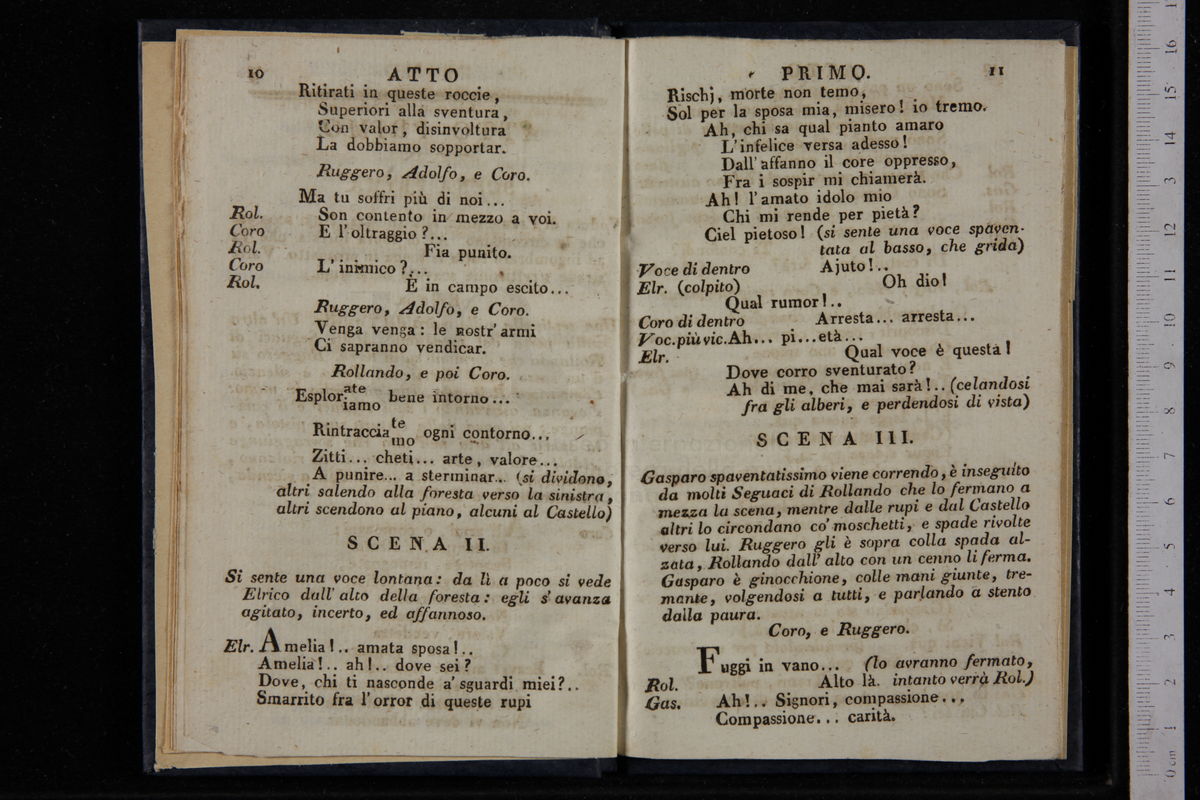 10 ATTO
Ritirati in queste roccie,
Superiori alla sventura,
Con valor, disinvoltura
La dobbiamo sopportar.
Ruggero, Adolfo, e Coro.
Ma tu soffri più di noi...
Rol. Son contento in mezzo a voi.
Coro E l'oltraggio?...
Rol. Fia punito.
Coro L'inimico?...
Rol. È in campo escito...
Ruggero, Adolfo, e Coro.
Venga venga: le nostr'armi
Ci sapranno vendicar.
Rollando, e poi Coro.
Esplor ate iamo bene intorno...
Rintraccia te mo ogni contorno...
Zitti... cheti... arte, valore...
A punire... a sterminar... (si dividono,
altri salendo alla foresta verso la sinistra,
altri scendono al piano, alcuni al Castello)
SCENA II.
Si sente una voce lontana: da lì a poco si vede
Elrico dall'alto della foresta: egli s'avanza
agitato, incerto, ed affannoso.
Elr. Amelia!.. amata sposa!..
Amelia!.. ah!.. dove sei?
Dove, chi ti nasconde a'sguardi miei?..
Smarrito fra l'orror di queste rupi
PRIMO. 11
Rischj, morte non temo,
Sol per la sposa mia, misero! io tremo.
Ah, chi sa qual pianto amaro
L'infelice versa adesso!
Dall'affanno il core oppresso,
Fra i sospir mi chiamerà.
Ah! l'amato idolo mio
Chi mi rende per pietà?
Ciel pietoso! (si sente una voce spaven-
tata al basso, che grida)
Voce di dentro Ajuto!..
Elr. (colpito) Oh dio!
Qual rumor!..
Coro di dentro Arresta... arresta...
Voc. più vic. Ah... pi...età...
Elr. Qual voce è questa!
Dove corro sventurato?
Ah di me, che mai sarà!.. (celandosi
fra gli alberi, e perdendosi di vista)
SCENA III.
Gasparo spaventatissimo viene correndo, è inseguito
da molti Seguaci di Rollando che lo fermano a
mezza la scena, mentre dalle rupi e dal Castello
altri lo circondano co'moschetti, e spade rivolte
verso lui. Ruggero gli è sopra colla spada al-
zata, Rollando dall'alto con un cenno li ferma.
Gasparo è ginocchione, colle mani giunte, tre-
mante, volgendosi a tutti, e parlando a stento
dalla paura.
Coro, e Ruggero.
Fuggi in vano... (lo avranno fermato,
Rol. Alto là. intanto verrà Rol.)
Gas. Ah!.. Signori, compassione...
Compassione... carità.
0 cm 1 2 3 4 5 6 7 8 9 10 11 12 13 14 15 16